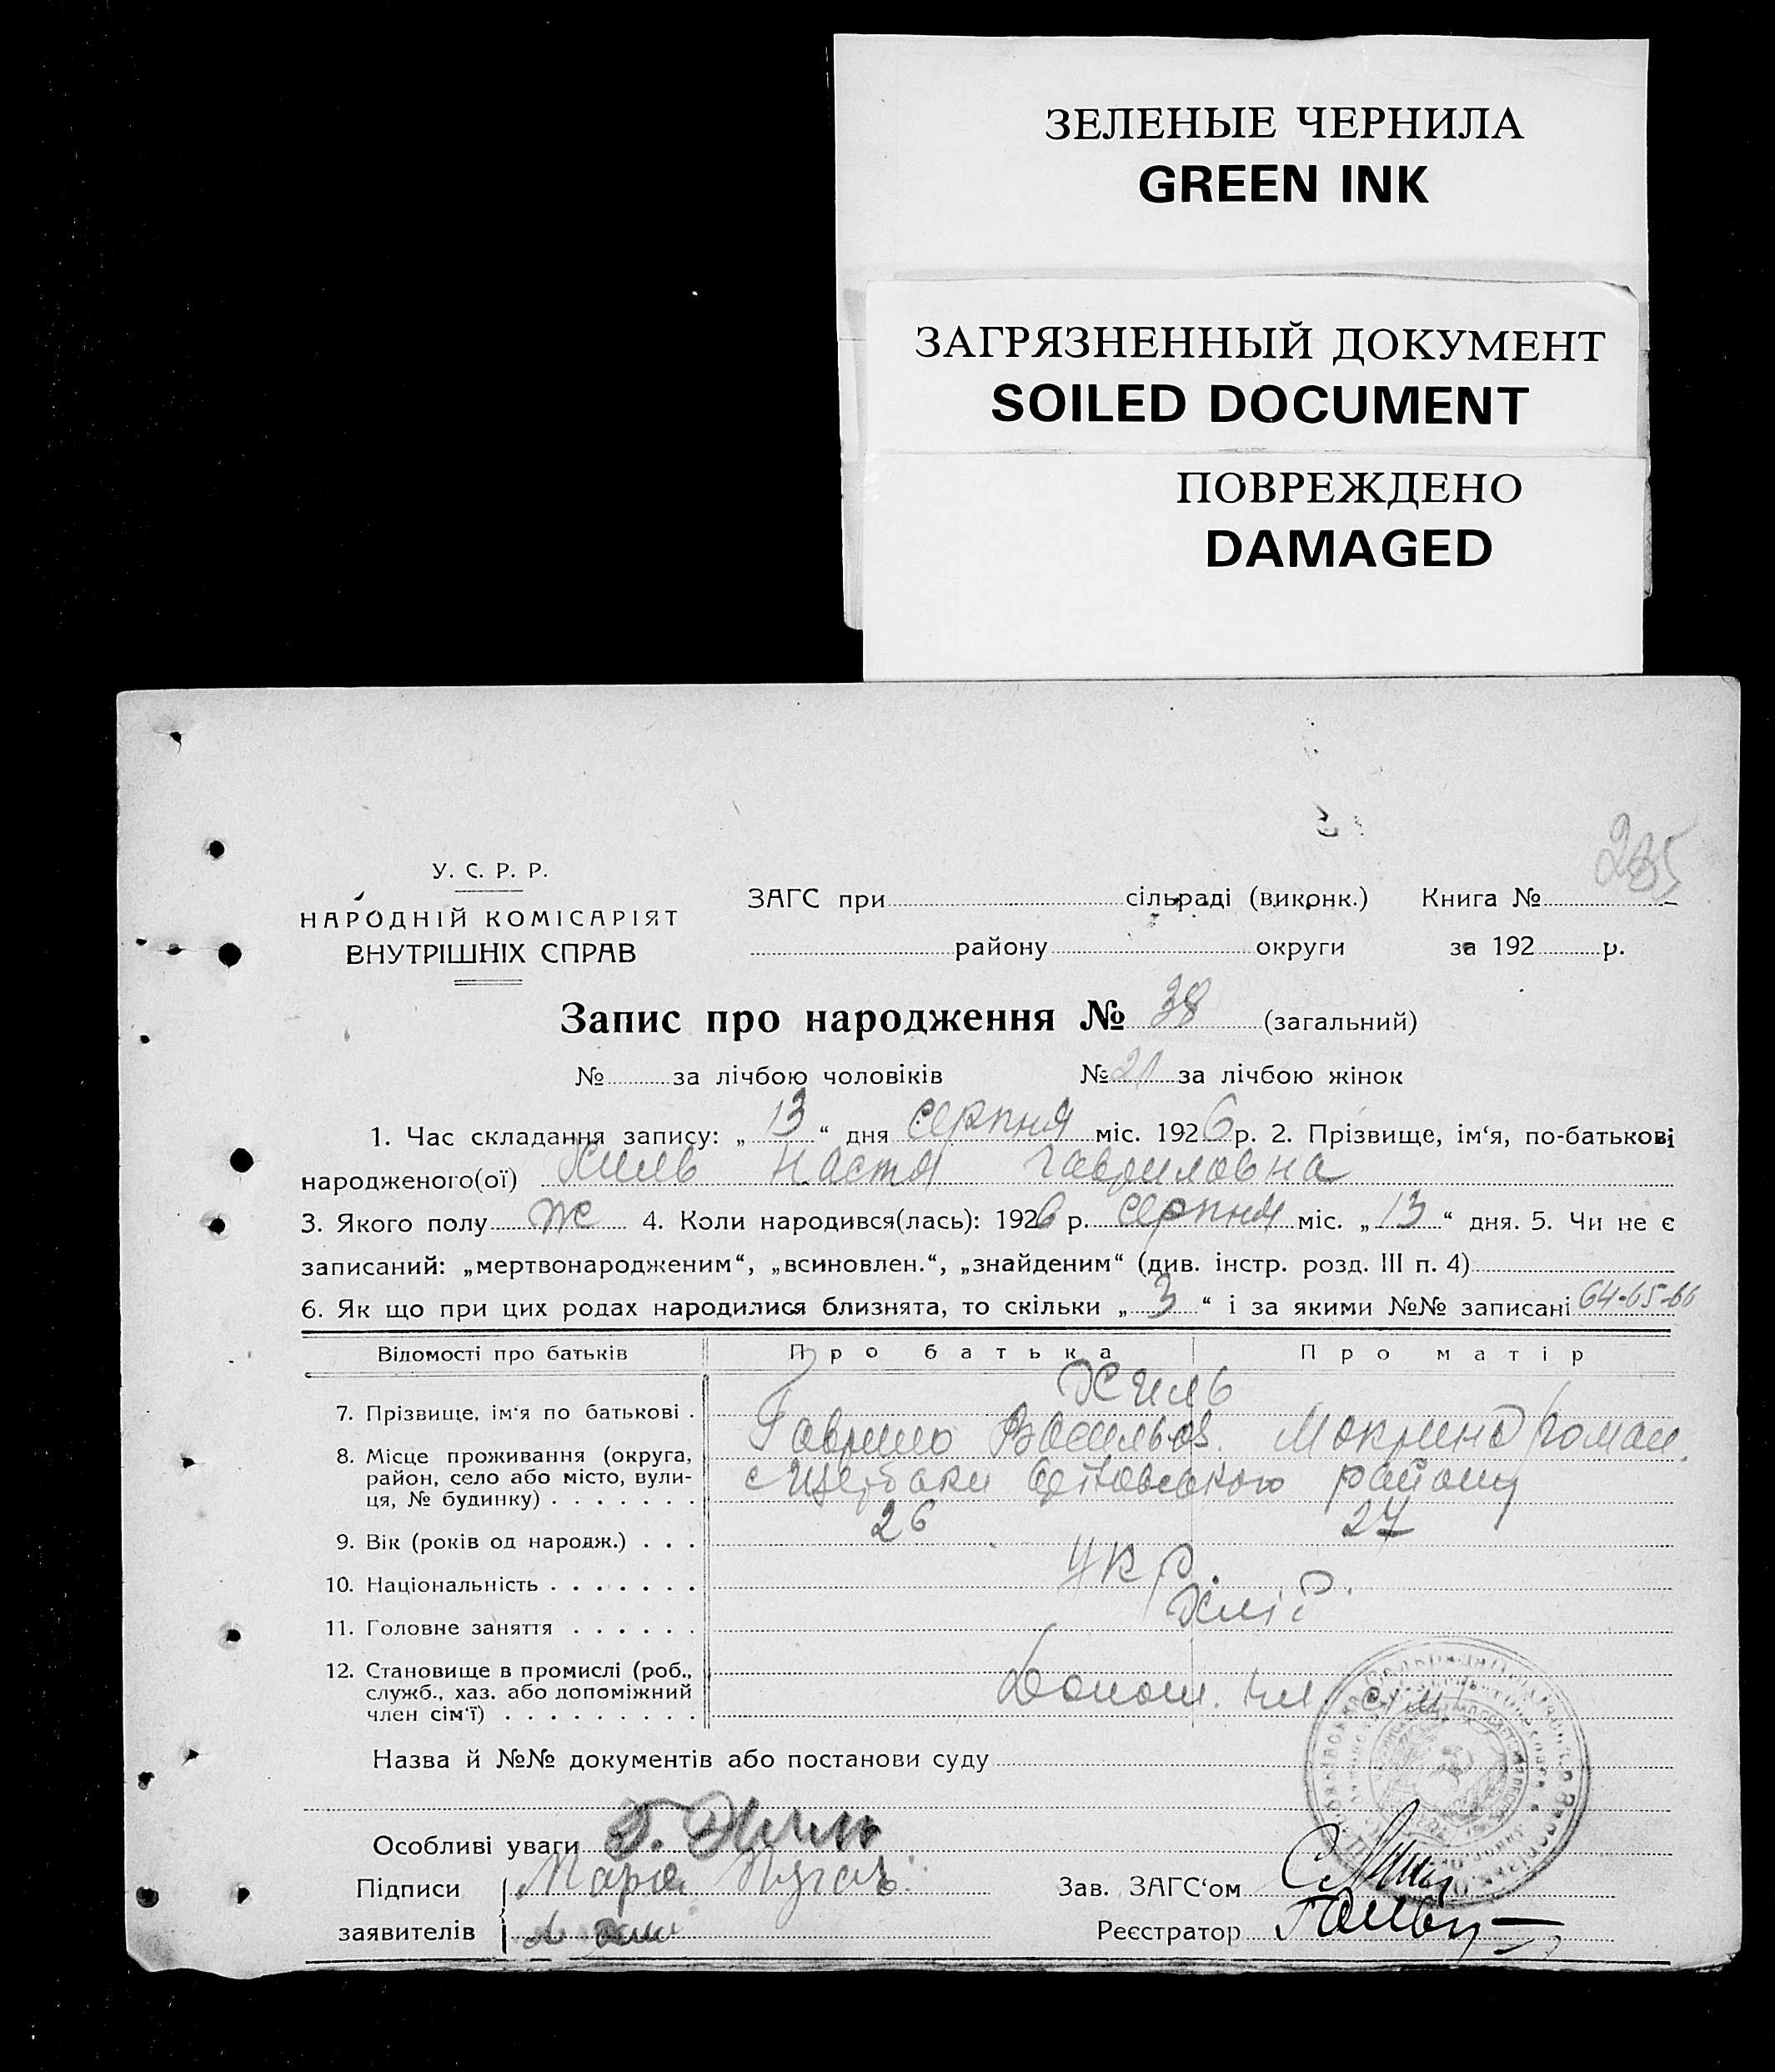 ЗЕЛЕНЫЕ ЧЕРНИЛА
GREEN INK
ЗАГРЯЗНЕННЫЙ ДОКУМЕНТ
SOILED DOCUMENT
ПОВРЕЖДЕНО
DAMAGED
У. С. Р. Р.
НАРОДНІЙ КОМІСАРІЯТ
ВНУТРІШНІХ СПРАВ
ЗАГС при сільраді (виконк.) Книга №
району округи за 192 р.
Запис про народження № 38 (загальний)
№ за лічбою чоловіків № 21 за лічбою жінок
1. Час складання запису: „ 13 “ дня серпня міс. 1926 р. 2. Прізвище, ім‘я, по-батькові
народженого(ої) Жиль Настя Гавриловна
3. Якого полу Ж 4. Коли народився(лась): 1926 р. серпня міс. „ 13 “ дня. 5. Чи не є
записаний: „мертвонародженим“, „всиновлен.“, „знайденим“ (див. інстр. розд. III п. 4)
6. Як що при цих родах народилися близнята, то скільки „ 3 “ і за якими №№ записані 64-65-66
Відомості про батьків Про батька Про матір
Жиль
7. Прізвище, ім‘я по батькові . Гаврило Васильов. Мокрина Роман.
8. Місце проживання (округа, район, село або місто, вулиця, № будинку) . . . . . . . с Щербаки району
9. Вік (років од народж.) . . . 26 27
10. Національність . . . . . . . Укр.
11. Головне заняття . . . . . . Хліб.
12. Становище в промислі (роб., служб., хаз. або допоміжний член сім‘ї) . . . . . . . . . Допом. чл. сім
Назва й №№ документів або постанови суду
Особливі уваги Г. Жиль
Підписи
заявителів
Зав. ЗАГС‘ом
Реєстратор